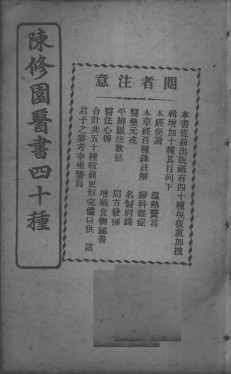 陳修園醫書四十種
閱者注意
本書從前出版祇有四十種現復重加搜
輯增加十種其目列下
本經便讀
本草經百種錄註解
醫壘元戎
平辨脈法歌括
醫法心傳
溫熱贅言
婦科雜症
名醫別錄
局方發揮
增補食物祕書
合計共五十種較前更形完備以供 諸
君子之參考幸垂鑒焉